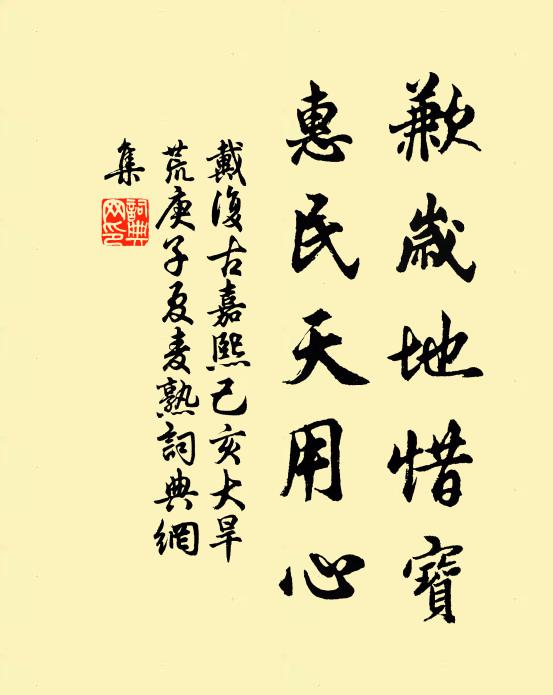 歉歲地惜寶
惠民天用心
戴復古嘉熙己亥大旱
荒庚子夏麦熟詞典網
集
詞典網